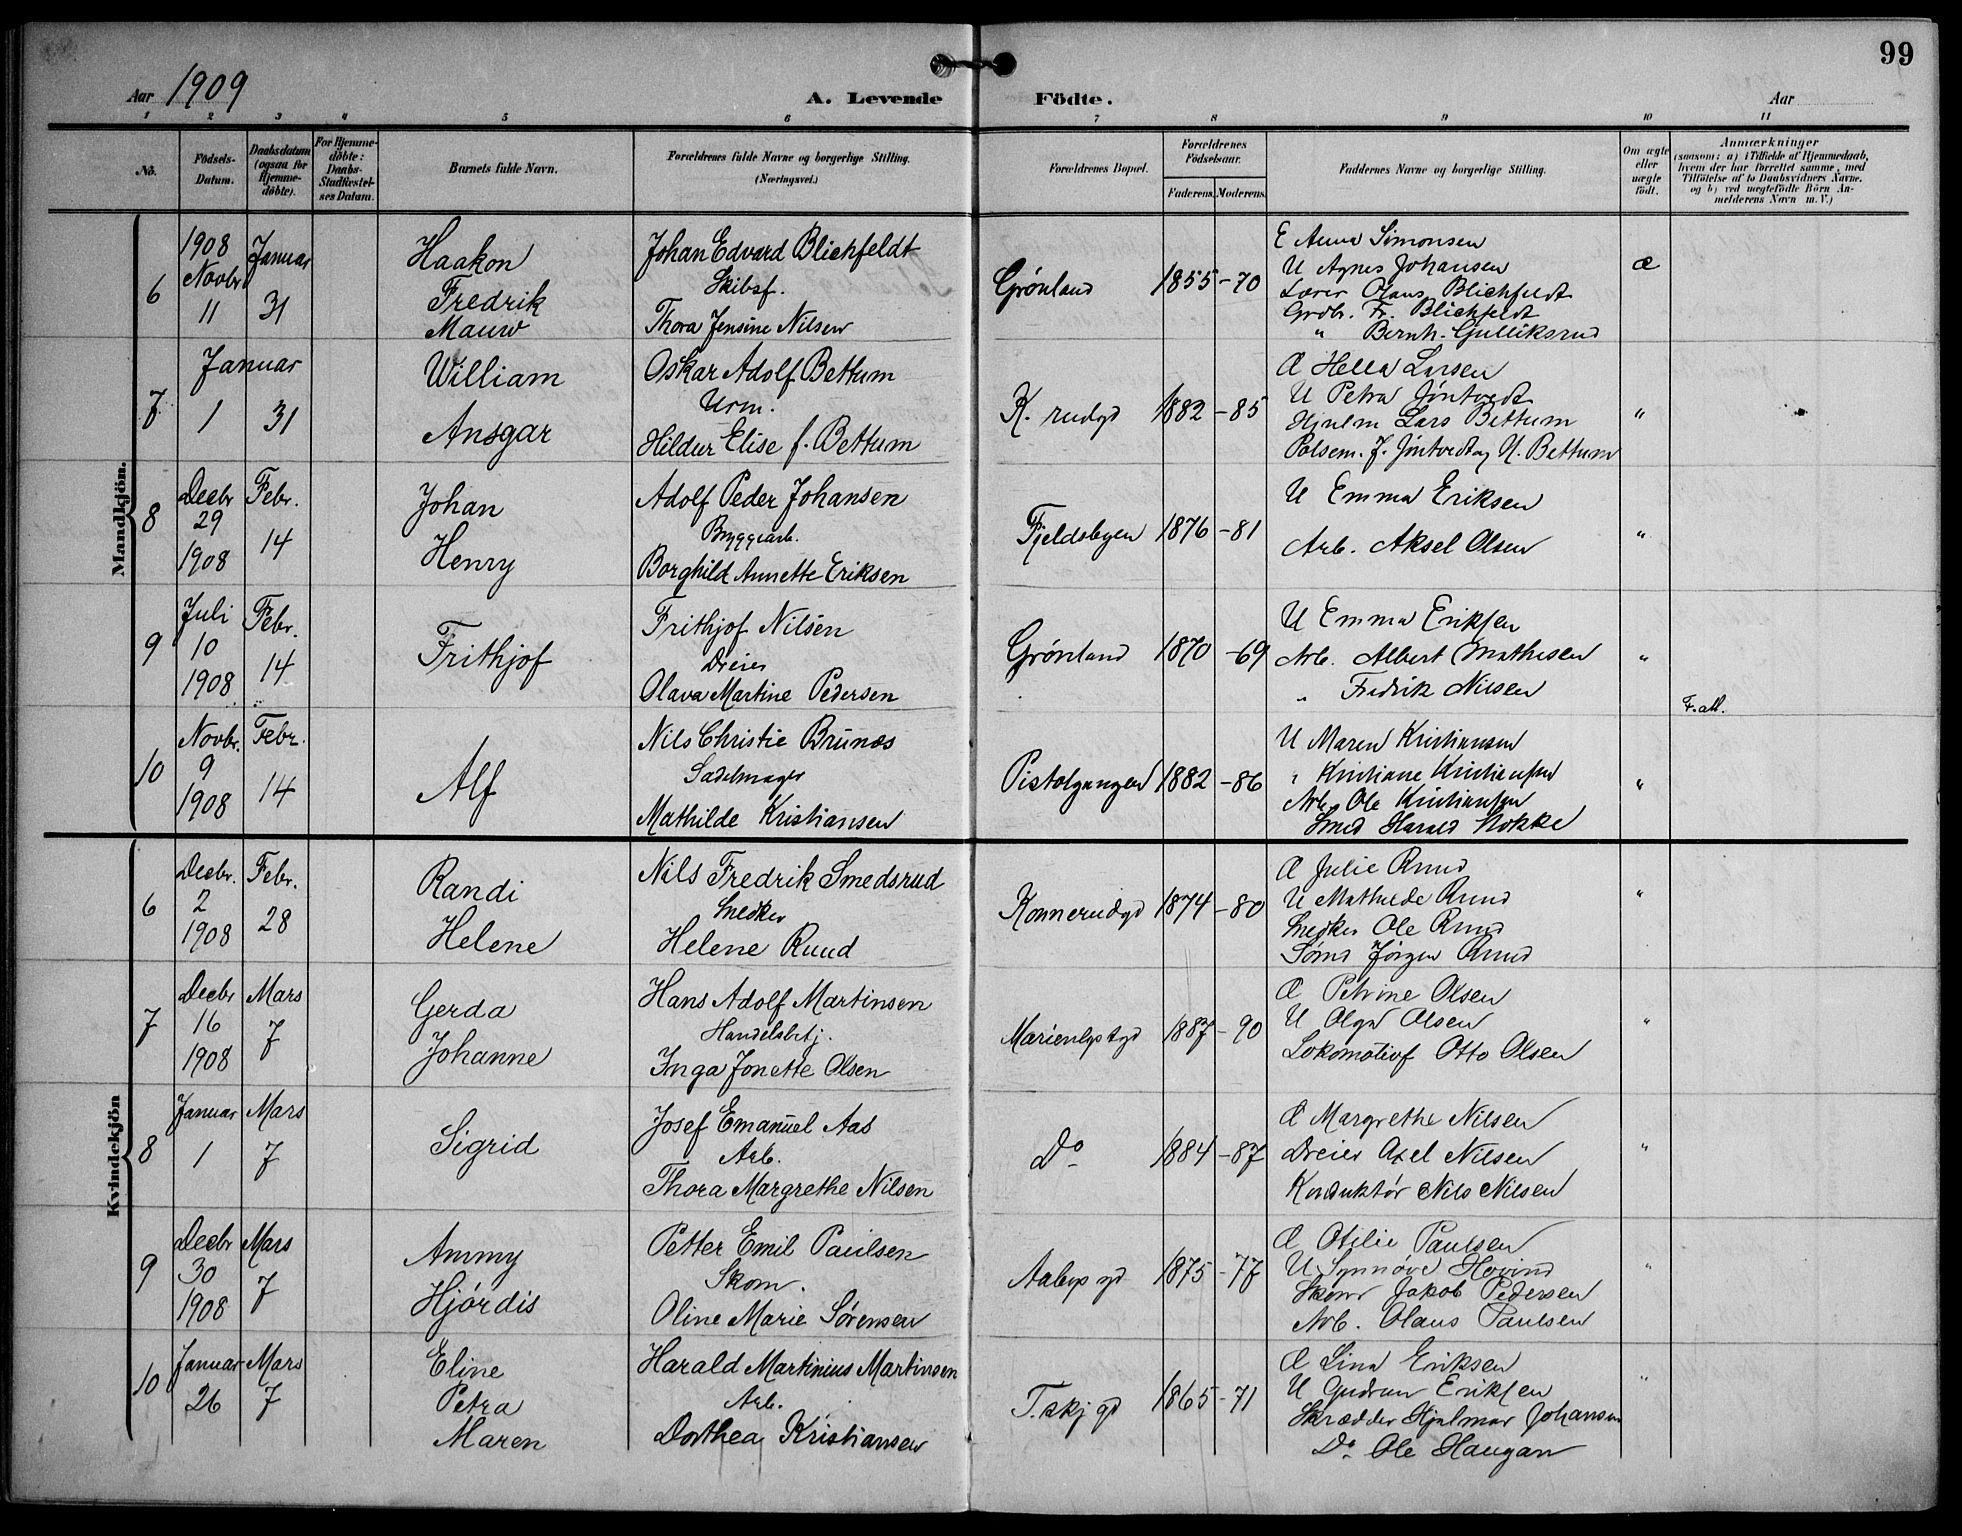 99
Aar 1909
A. Levende Födte.
Aar
1 2 3 4 5 6 7 8 9 10 11
No.
Födsels-Datum.
Daabsdatum (ogsaa for Hjemme-döbte).
For Hjemme-döbte: Daabs-Stadfæstel-ses Datum.
Barnets fulde Navn.
Forældrenes fulde Navne og borgerlige Stilling.
(Næringsvei.)
Forældrenes Bopæl.
Forældrenes Födselsaar.
Faderens. Moderens.
Faddernes Navne og borgerlige Stilling.
Om ægte eller uægte födt.
Anmærkninger
(saasom: a) i Tilfælde af Hjemmedaab,
hvem der har forrettet samme, med
Tilföielse af to Daabsvidners Navne.
og b) ved uægtefödte Börn An-
melderens Navn m. V.)
Mandkjön.
6 1908 Novbr 11 Januar 31
Haakon Fredrik
Johan Edvard Blichfeldt
Skibsf.
Thora Jensine Nilsen
Grønland 1855 - 70
E Anna Simonsen
U Agnes Johansen
Lærer Olaus Blichfeldt
Grdbr. Fr. Blichfeldt
" Bernh. Gulliksrud
æ
7 Januar 1 31
William Ansgar
Oskar Adolf Bettum
Urm.
Hildur Elise f. Bettum
K. rudgd 1882 - 85
Æ Hella Larsen
U Petra Jøntvedt
Lars Bettum
Polsem. J. Jøntvedt og N. Bettum
"
8 Decbr 29 1908 Febr. 14
Johan Henry
Adolf Peder Johansen
Bryggearb.
Borghild Annette Eriksen
Fjeldsbyen 1876 - 81
U Emma Eriksen
Arb. Aksel Olsen
"
9 Juli 10 1908 Febr. 14
Frithjof
Frithjof Nilsen
Dreier
Olava Martine Pedersen
Grønland 1870 - 69
U Emma Eriksen
Arb. Albert Mathisen
" Fredrik Nilsen
"
F. att.
10 Novbr. 9 1908 Febr. 14
Alf
Nils Christie Brunæs
Sadelmager
Mathilde Kristiansen
Pistolgangen 1882 - 86
U Maren Kristiansen
" Kristiane Kristiansen
Arb. Ole Kristiansen
Smed Harald Nokke
"
Kvindekjön
6 Decbr. 2 1908 Febr. 28
Randi Helene
Nils Fredrik Smedsrud
Snedker
Helene Ruud
Konnerudgd 1874 - 80
Æ Julie Ruud
U Mathilde Ruud
Snedker Ole Ruud
Sømd Jørgen Ruud
"
7 Decbr 16 1908 Mars 7
Gerda Johanne
Hans Adolf Martinsen
Handelsbetj.
Inga Jonette Olsen
Marienlystgd 1887 - 90
Æ Petrine Olsen
U Olga Olsen
Lokomotivf Otto Olsen
"
8 Januar 1 Mars 7
Sigrid
Josef Emanuel Aas
Arb.
Thora Margrethe Nilsen
Do 1884 - 87
Æ Margrethe Nilsen
Dreier Axel Nilsen
Konduktør Nils Nilsen
"
9 Decbr 30 1908 Mars 7
Ammy Hjørdis
Petter Emil Paulsen
Skom.
Oline Marie Sørensen
Aabys gd 1875 - 77
Æ Otilie Paulsen
U Synnøve Hovind
Skom Jakob Pedersen
Arb. Olaus Paulsen
"
10 Januar 26 Mars 7
Eline Petra Maren
Harald Martinius Martinsen
Arb.
Dorthea Kristiansen
T.skj gd 1865 - 71
Æ Lina Eriksen
U Gudrun Eriksen
Skrædder Hjalmar Johansen
Do Ole Haugan
"